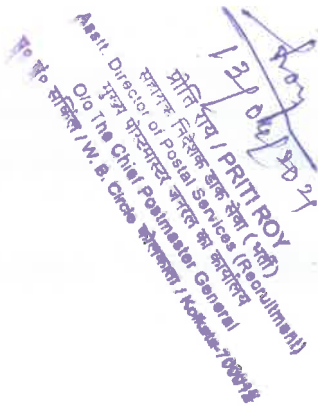 प्रीति राय / PRITI ROY
सहायक निदेशक डाक सेवा (भर्ती)
Asstt. Director of Postal Services (Recruitment)
मुख्य पोस्टमास्टर जनरल का कार्यालय
O/o The Chief Postmaster General
प० बं० सर्किल / W. B. Circle कोलकाता / Kolkata-700012